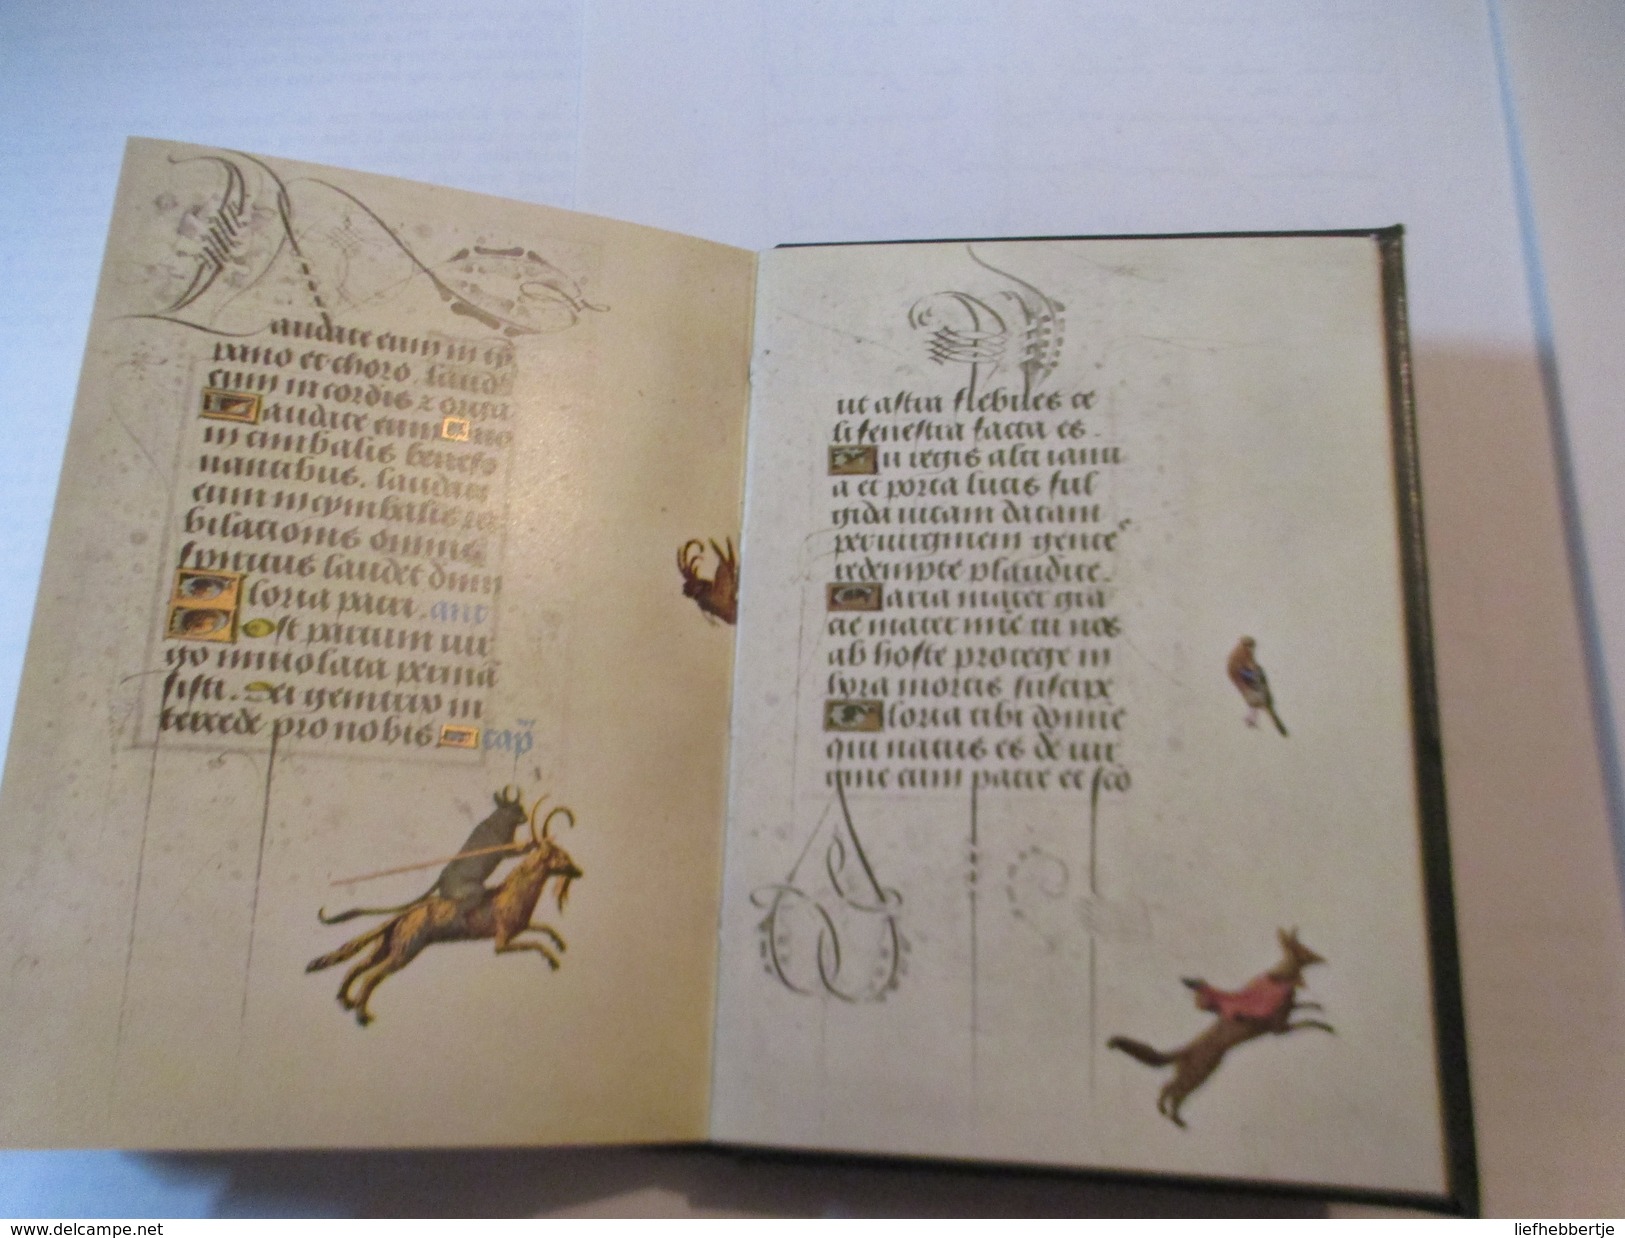 audate eum in tỹ
pano et choro. laud
eum in cordis ⁊ orga
audate eum no
in cimbalis benesō
nantibus. laudate
eum in cymbalis iu
bilationis omnis
spiritus laudet dnm
loria patri. anȳ
Ost partum uir
go inuiolata permā
sisti. Dei genitrix in
tercede pro nobis cap
ut astra flebiles ce
li fenestra facta es.
u regis alti ianu
a et porta lucis ful
gida uitam datam
per uirginem gente
redempte plaudite.
aria mater gra
ae mater mie tu nos
ab hoste protege in
hora mortis suscipe
loria tibi domie
qui natus es de uir
gine cum patre et sco
www.delcampe.net
liefhebbertje